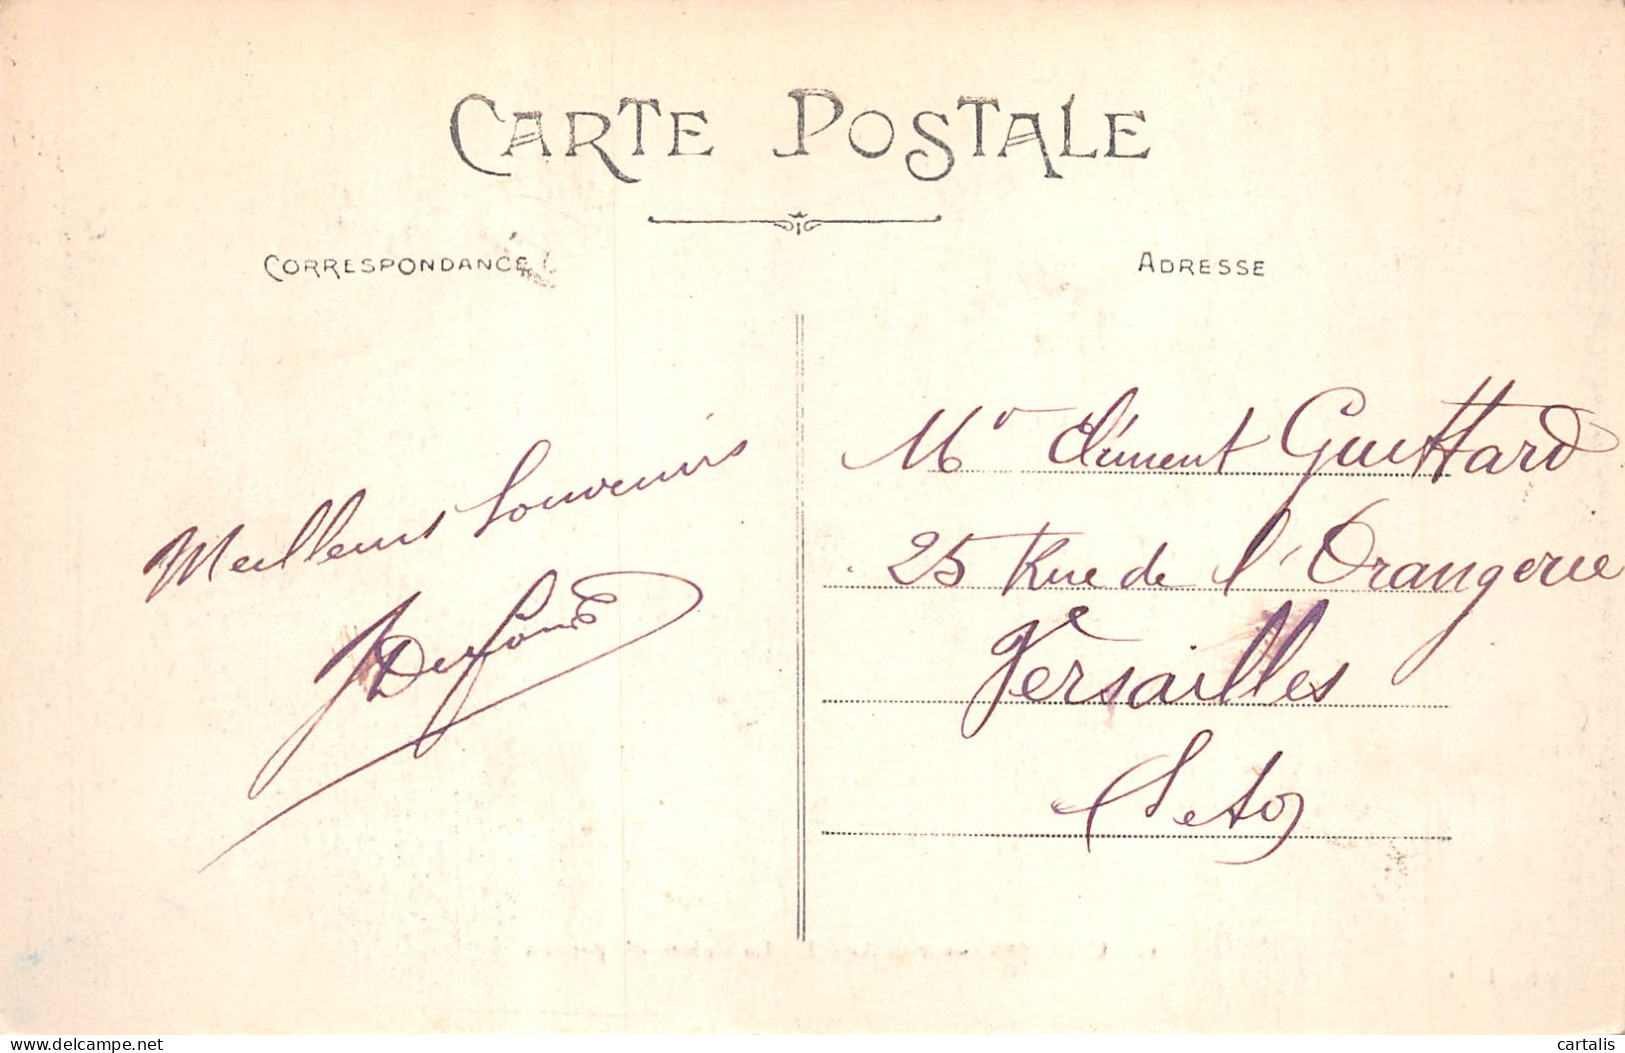 CARTE POSTALE
CORRESPONDANCE
ADRESSE
Meilleurs Souvenirs
Mr Clément Guittard
25 Rue de l'Orangerie
Versailles
(S et O)
www.delcampe.net
cartalis